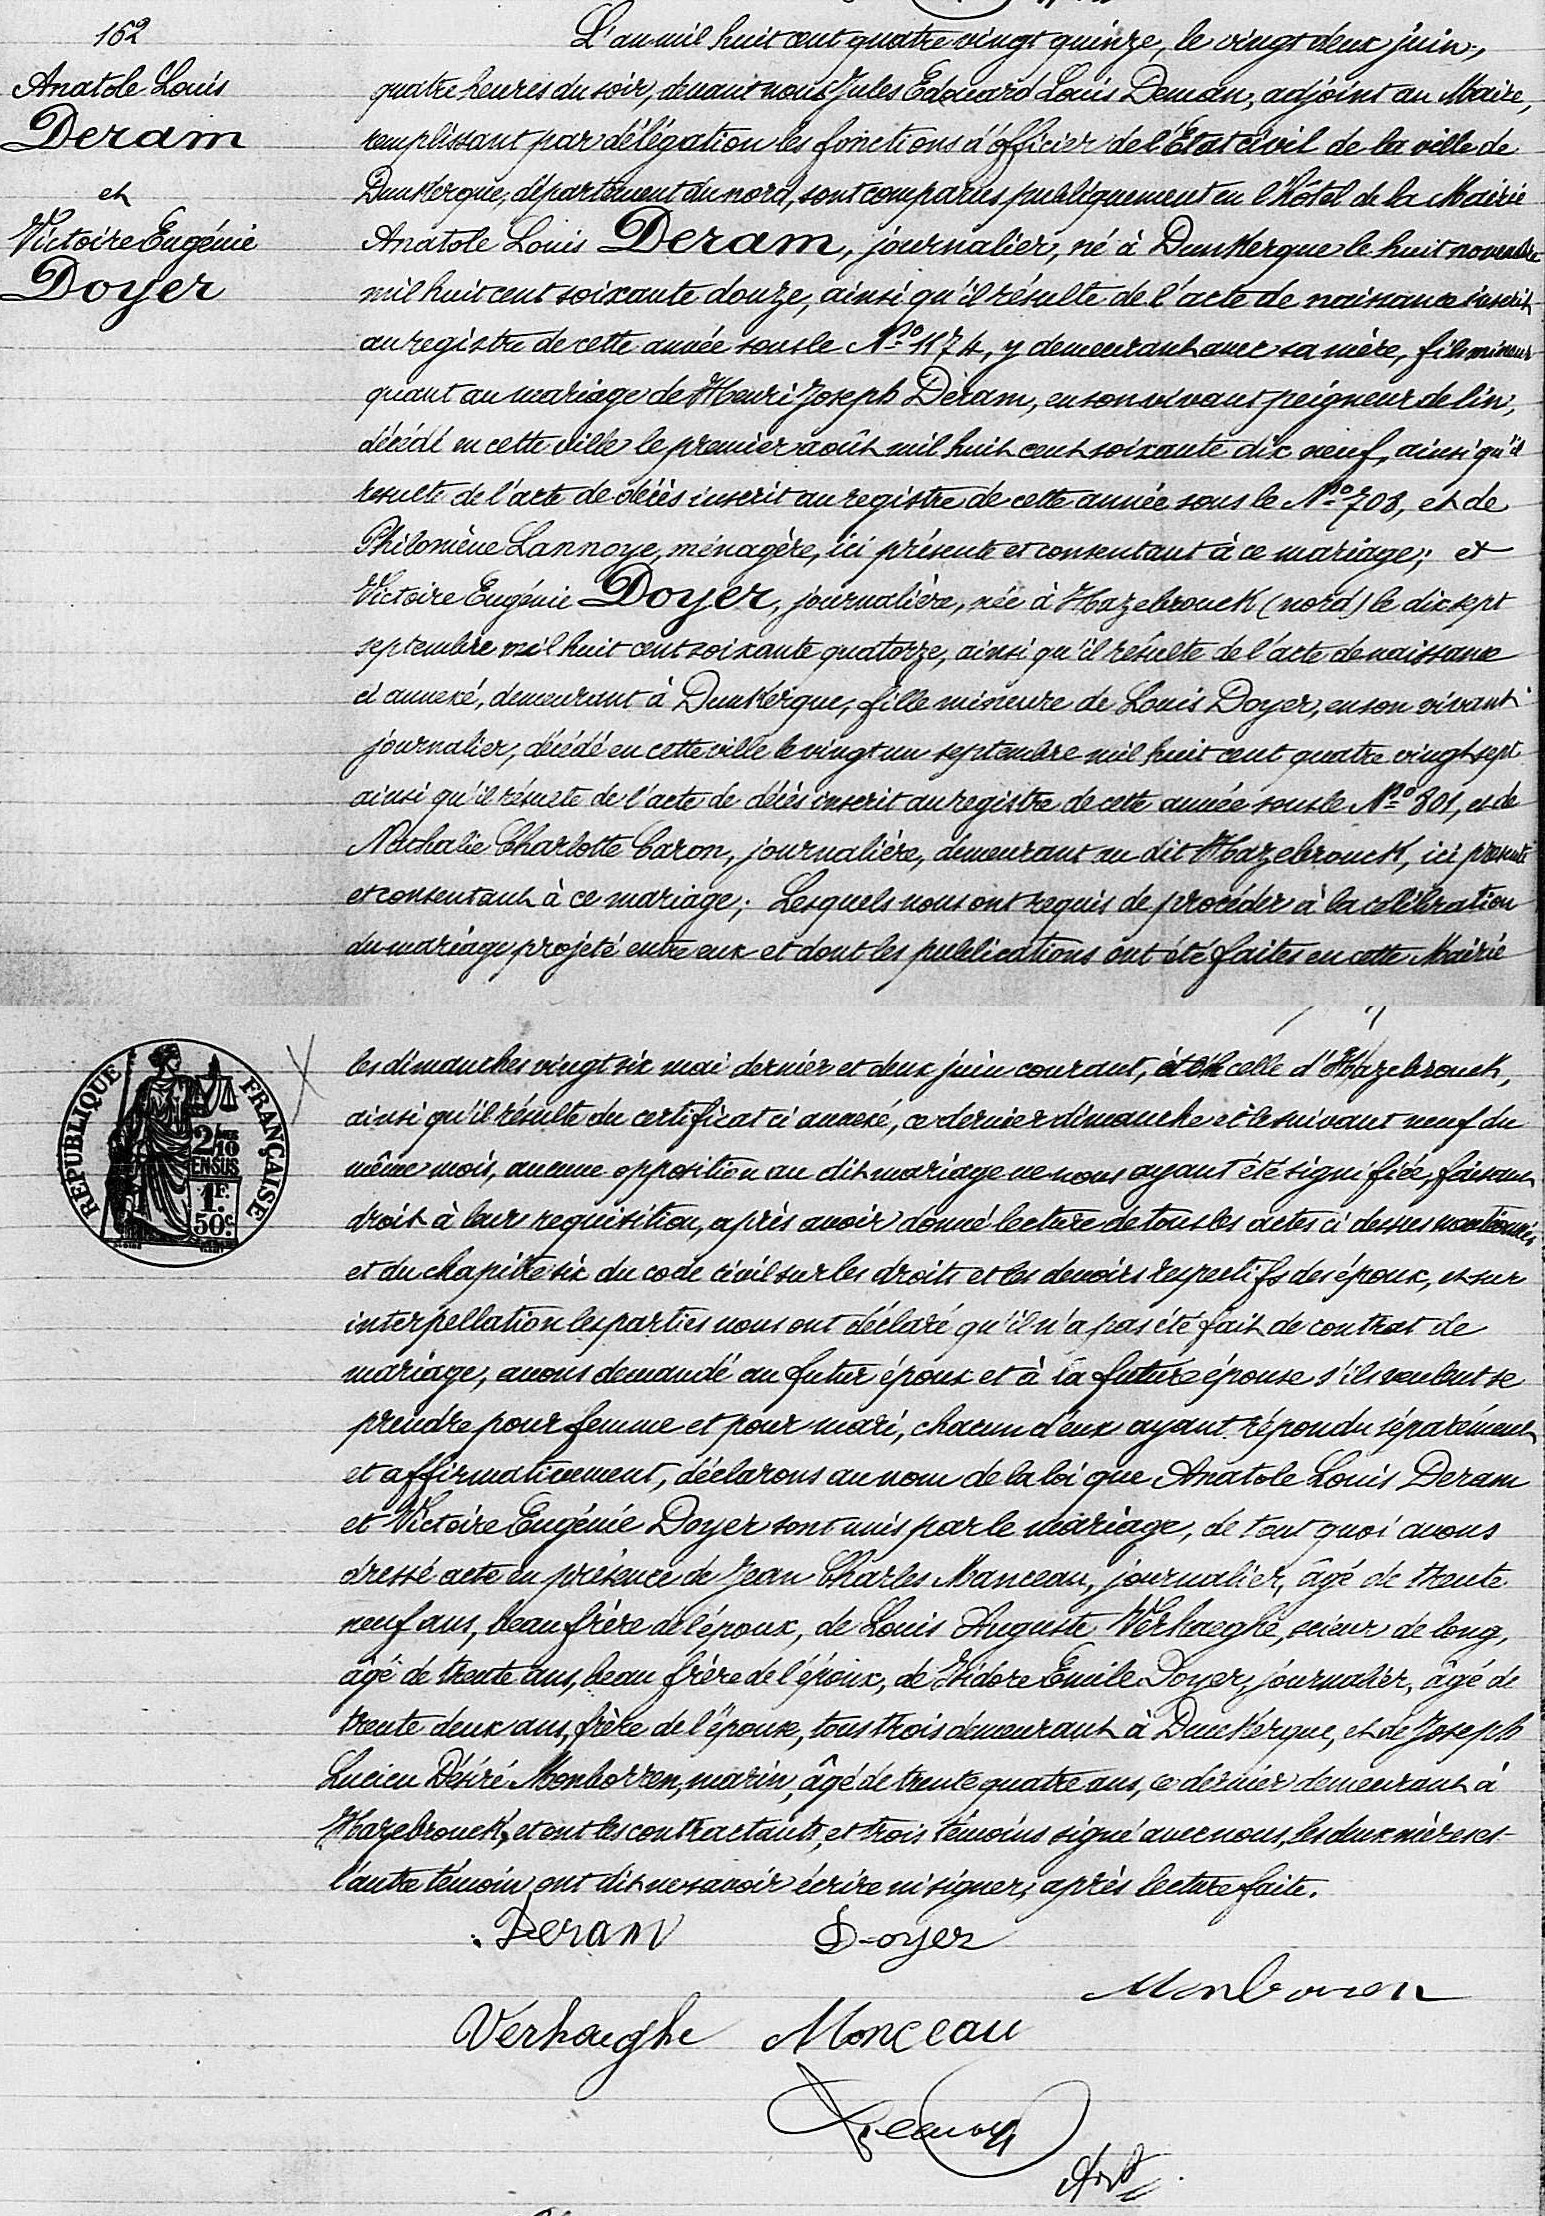 162
Anatole Louis
Deram
et
Victoire Eugénie
Doyer
L'an mil huit cent quatre vingt quinze, le vingt deux juin,
quatre heures du soir, devant nous Jules Edouard Louis Deman, adjoint au Maire,
remplissant par délégation les fonctions d'officier de l'Etat civil de la ville de
Dunkerque, département du nord, sont comparus publiquement en l'hôtel de la Mairie
Anatole Louis Deram, journalier, né à Dunkerque le huit novembre
mil huit cent soixante douze, ainsi qu'il résulte de l'acte de naissance inscrit
au registre de cette année sous le No 1174, y demeurant avec sa mère, fils mineur
quant au mariage de Henri Joseph Deram, en son vivant peigneur de lin,
décédé en cette ville le premier août mil huit cent soixante dix neuf, ainsi qu'il
resulte de l'acte de décès inscrit au registre de cette année sous le No 708, et de
Philomène Lannoye, ménagère, ici présente et consentant à ce mariage; et
Victoire Eugénie Doyer, journalière, née à Hazebrouck (nord) le dix sept
septembre mil huit cent soixante quatorze, ainsi qu'il résulte de l'acte de naissance
ci annexé, demeurant à Dunkerque, fille mineure de Louis Doyer, en son vivant
journalier, décédé en cette ville le vingt un septembre mil huit cent quatre vingt sept
ainsi qu'il résulte de l'acte de décès inscrit au registre de cette année sous le No 801, et de
Nathalie Charlotte Caron, journalière, demeurant au dit Hazebrouck, ici présente
et consentant à ce mariage; Lesquels nous ont requis de procéder à la célébration
du mariage projeté entre eux et dont les publications ont été faites en cette Mairie
RÉPUBLIQUE FRANÇAISE
2/10
EN SUS
1F.
50c.
les dimanches vingt six mai dernier et deux juin courant, et en celle d'Hazebrouck,
ainsi qu'il résulte du certificat ci annexé, ce dernier dimanche et le suivant neuf du
même mois, aucune opposition au dit mariage ne nous ayant été signifiée, faisant
droit à leur requisition, après avoir donné lecture de tous les actes ci dessus mentionnés
et du chapitre six du code civil sur les droits et les devoirs respectifs des époux, et sur
interpellation les parties nous ont déclaré qu'il n'a pas été fait de contrat de
mariage, avons demandé au futur époux et à la future épouse s'ils veulent se
prendre pour femme et pour mari, chacun d'eux ayant répondu séparément
et affirmativement, déclarons au nom de la loi que Anatole Louis Deram
et Victoire Eugénie Doyer sont unis par le mariage, de tout quoi avons
dressé acte en présence de Jean Charles Manceau, journalier, âgé de trente
neuf ans, beau frère de l'époux, de Louis Auguste Verhaeghe, scieur de long,
âgé de trente ans, beau frère de l'époux, de Isidore Emile Doyer, journalier, âgé de
trente deux ans, frère de l'épouse, tous trois demeurant à Dunkerque, et de Joseph
Lucien Désiré Monborren, marin, âgé de trente quatre ans, ce dernier demeurant à
Hazebrouck, et ont les contractants, et trois témoins signé avec nous, les deux mères et
l'autre témoin ont dit ne savoir écrire ni signer, après lecture faite.
Deram Doyer
Monborren
Verhaeghe Monceau